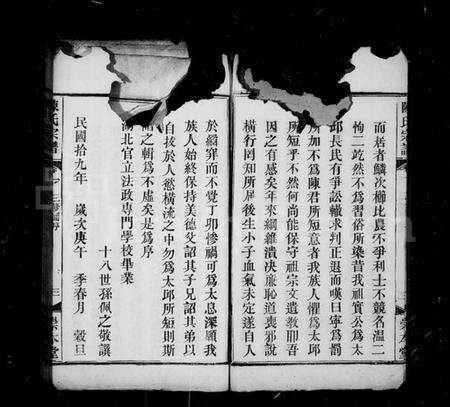 而居者鱗次櫛比農不爭利士不競名溫二
恂二屹然不為習俗所染昔我祖實公為太
邱長民有爭訟轍求判正退而嘆曰寧為罰
所加不為陳君所短意者我族人懼為太邱
所短乎不然何尚能保守祖宗文遺教耶吾
因之有感矣年來綱維潰决廉恥道喪邪說
橫行罔知所屆後生小子血氣未定遂自入
於牢而不覺丁卯慘禍可為太息深願我
族人始終保持美德父詔其子兄詔其弟以
自拔於人慾橫流之中勿為太邱所短則斯
之輯為不虛矣是為序
湖北官立法政專門學校畢業
十八世孫佩之敬譔
民國拾九年 歲次庚午 季春月 穀旦
陳氏宗譜